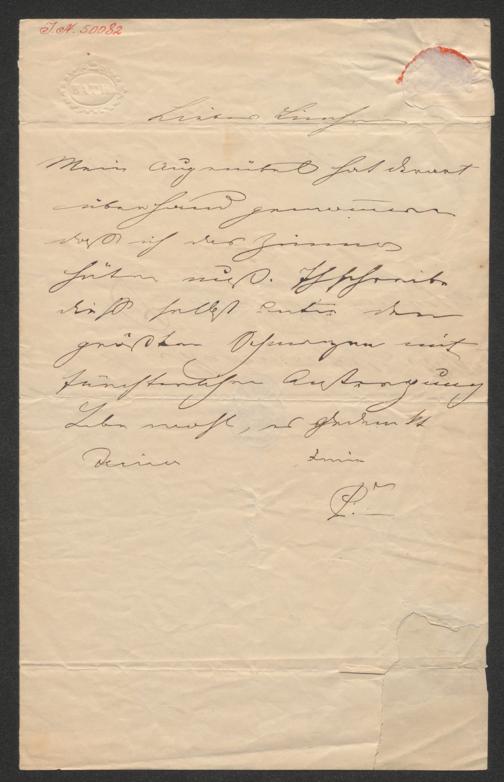 J.N. 50082
BATH
Lieber
Mein Augenübel hat derart
überhand genommen
daß ich das Zimmer
hüten muß. Ich schreibe
dieß selbst unter den
größten Schmerzen mit
fürchterlicher Anstrengung
Lebe wohl, es gedenkt
Deiner Dein
P.